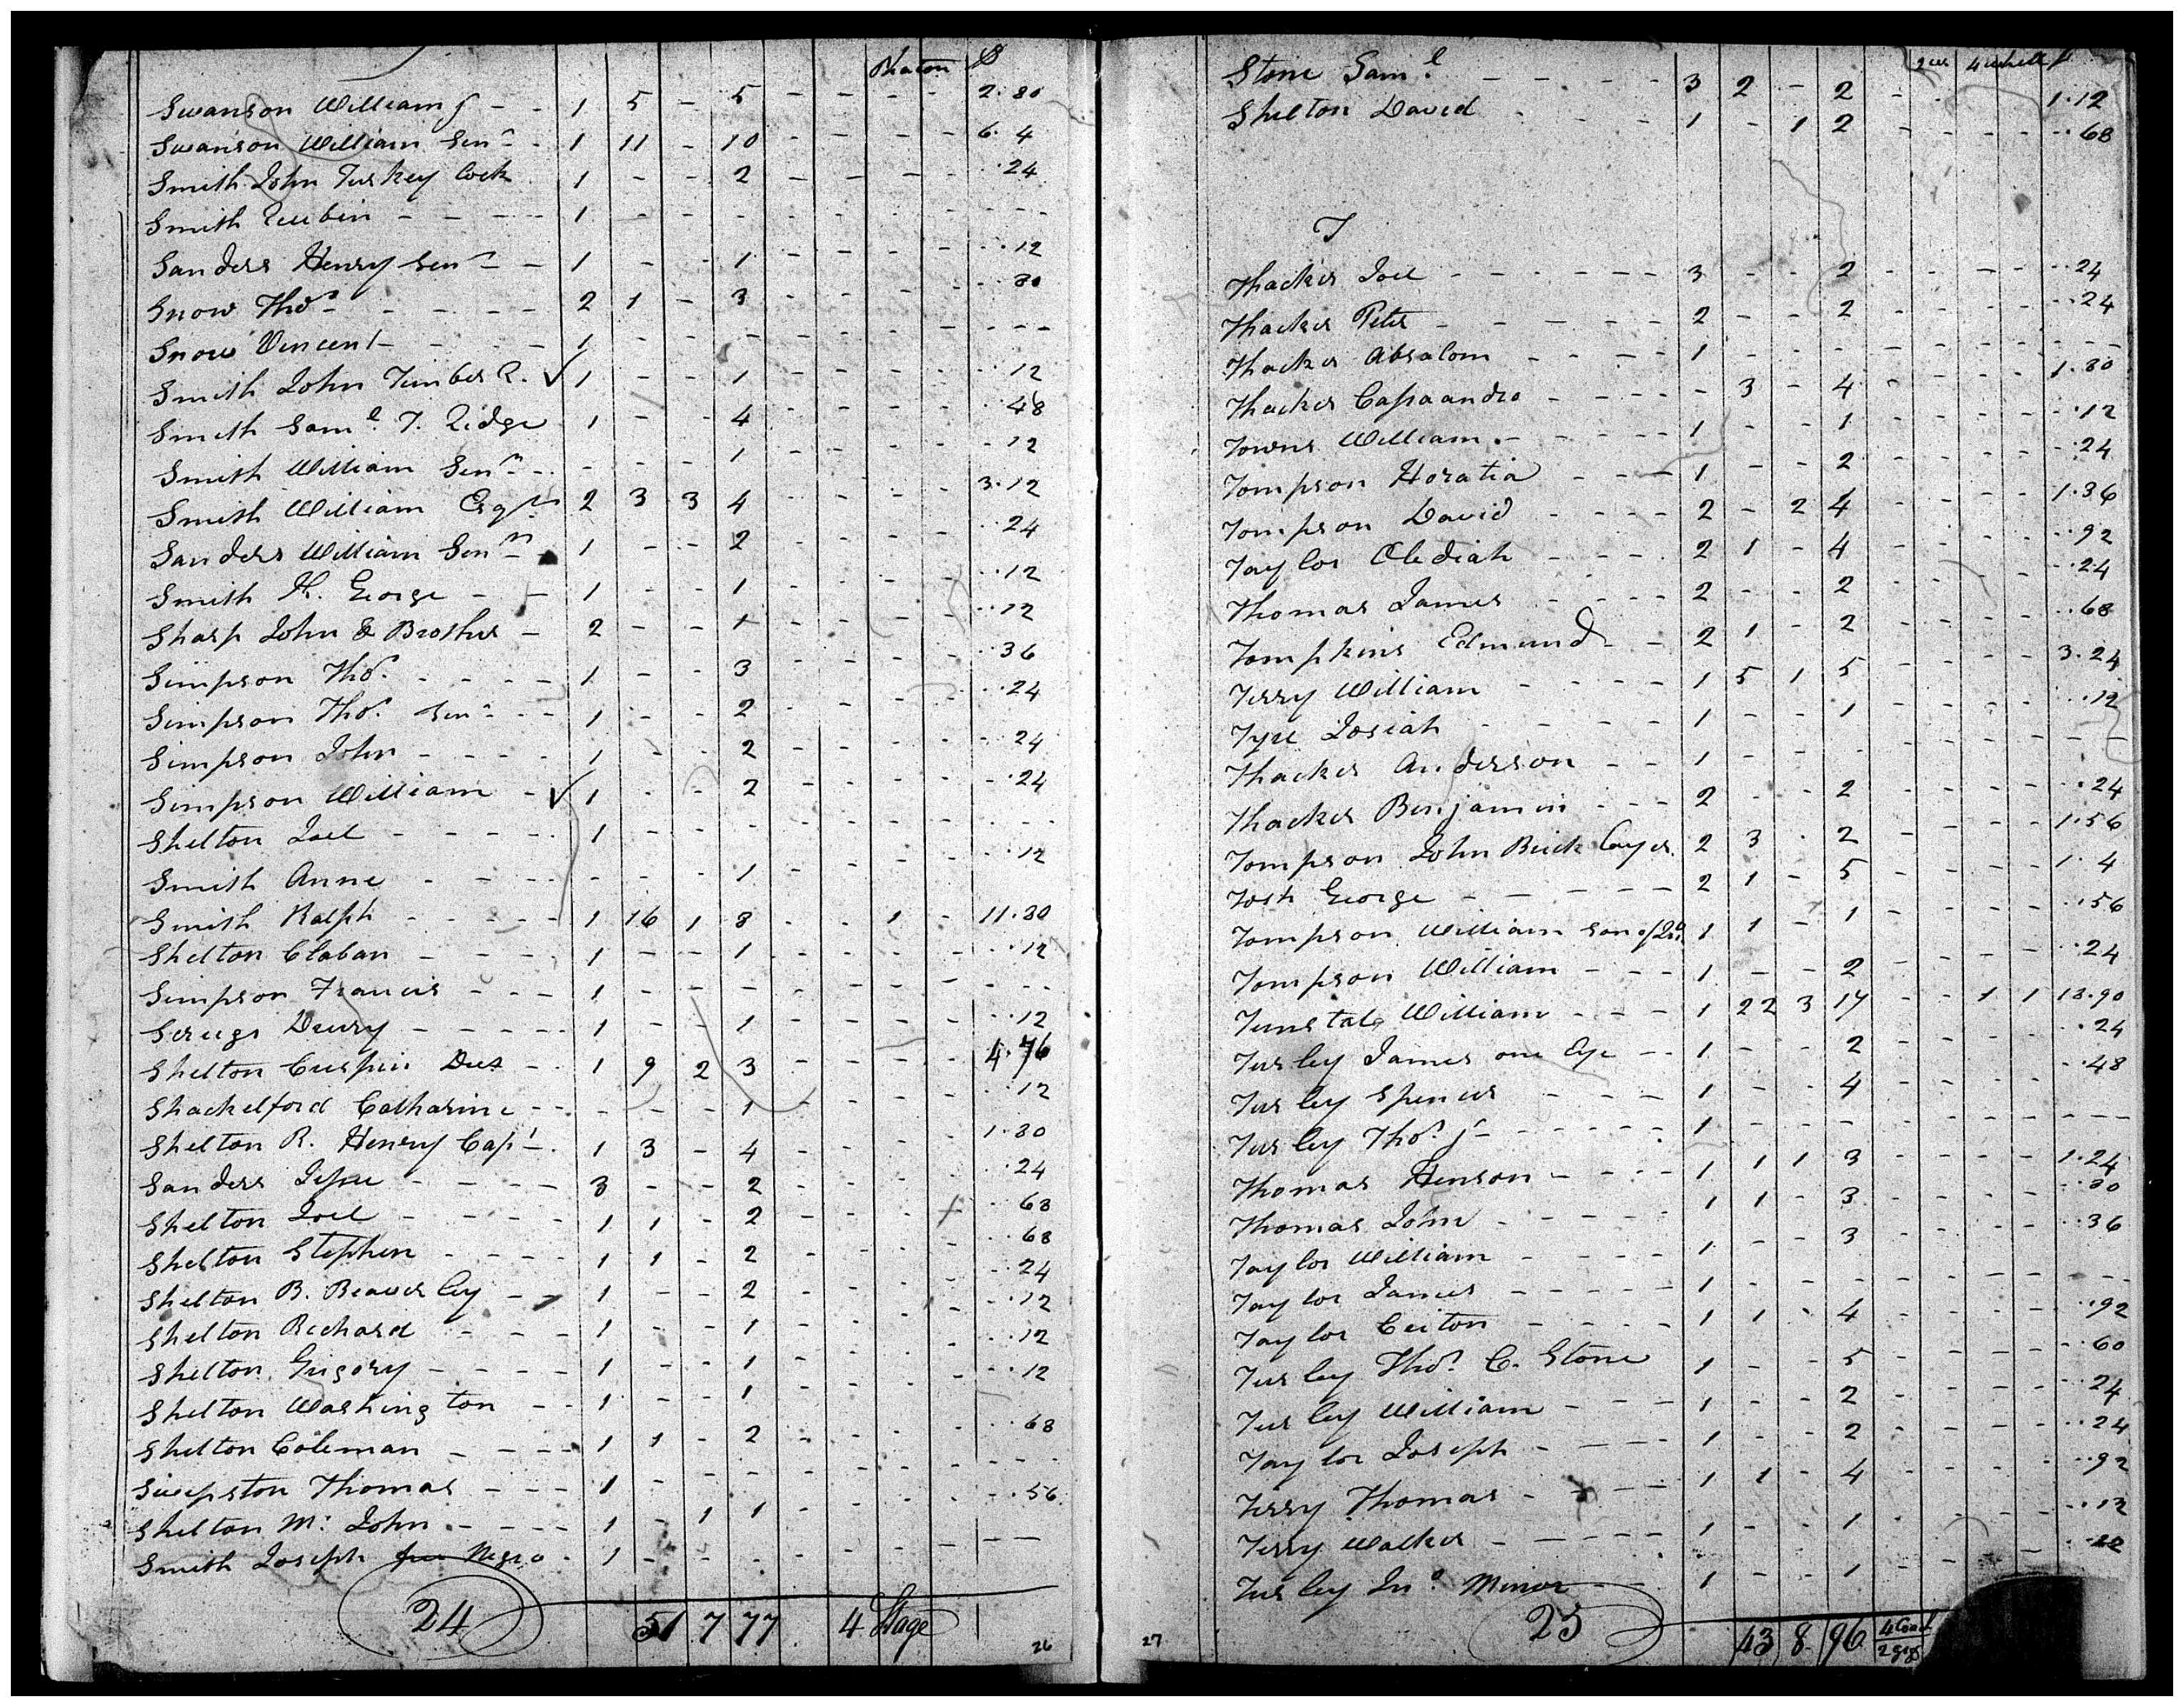 Phaton $
Swanson William J - - 1 5 - 5 - - - - 2.80
Swanson William Senr - - 1 11 - 10 - - - - 6.4
Smith John Turkey Cock 1 - - 2 - - - - .24
Smith Reubin - - - - 1 - - - - - - - - - -
Sanders Henry Senr - - 1 - - 1 - - - - .12
Snow Thos - - - - - 2 1 - 3 - - - - 80
Snow Vincent - - - - 1 - - - - - - - - - -
Smith John Timber R. ✓ 1 - - 1 - - - - .12
Smith Saml T. Ridge 1 - - 4 - - - - .48
Smith William Senr - - - - - 1 - - - - .12
Smith William Esqr 2 3 3 4 - - - - 3.12
Sanders William Senr - 1 - - 2 - - - - .24
Smith H. George - - 1 - - 1 - - - - .12
Sharp John & Brother - 2 - - 1 - - - - .12
Simpson Thos. - - - - 1 - - 3 - - - - .36
Simpson Thos. Senr - - 1 - - 2 - - - - .24
Simpson John - - - - 1 - - 2 - - - - .24
Simpson William - ✓ 1 - - 2 - - - - .24
Shelton Joel - - - - 1 - - - - - - - - - -
Smith Anne - - - - - - - 1 - - - - .12
Smith Ralph - - - - - 1 16 1 8 - - 1 - 11.30
Shelton Claban - - - - 1 - - 1 - - - - .12
Simpson Francis - - - 1 - - - - - - - - - -
Scrugs Drury - - - - 1 - - 1 - - - - .12
Shelton Crispin - 1 9 2 3 - - - - 4.76
Shackelford Catharine - - - - - 1 - - - - .12
Shelton R. Henry Capt - 1 3 - 4 - - - - 1.80
Sanders Jesse - - - - 3 - - 2 - - - - .24
Shelton Joel - - - - 1 1 - 2 - - - - .68
Shelton Stephen - - - - 1 1 - 2 - - - - .68
Shelton B. Beaverley - - 1 - - 2 - - - - .24
Shelton Richard - - - 1 - - 1 - - - - .12
Shelton Grigory - - - - 1 - - 1 - - - - .12
Shelton Washington - - 1 - - 1 - - - - .12
Shelton Coleman - - - - 1 1 - 2 - - - - .68
Swepston Thomas - - - 1 - - - - - - - - - -
Shelton M. John - - - - 1 - 1 1 - - - - .56
Smith Joseph free Negro - 1 - - - - - - - - -
24 51 7 77 4 Stage
26
4 wheell $
Stone Saml - - - - 3 2 - 2 - - - - 1.12
Shelton David - - - 1 - 1 2 - - - - .68
T
Thacker Joel - - - - - - 3 - - 2 - - - - .24
Thacker Peter - - - - - 2 - - 2 - - - - .24
Thacker Absalom - - - - 1 - - - - - - - - - -
Thacker Cassaandra - - - - - 3 - 4 - - - - 1.80
Towns William - - - - - 1 - - 1 - - - - .12
Tompson Horatia - - - 1 - - 2 - - - - .24
Tompson David - - - - 2 - 2 4 - - - - 1.36
Taylor Obediah - - - 2 1 - 4 - - - - .92
Thomas James - - - - 2 - - 2 - - - - .24
Tompkins Edmund - - 2 1 - 2 - - - - .68
Terry William - - - - 1 5 1 5 - - - - 3.24
Tyre Josiah - - - - - 1 - - 1 - - - - .12
Thacker Anderson - - 1 - - - - - - - - - -
Thacker Benjamin - - - 2 - - 2 - - - - .24
Tompson John Brick layer. 2 3 - 2 - - - - 1.56
Tosh George - - - - - - 2 1 - 5 - - - - 1.4
Tompson William son of 1 1 - 1 - - - - .56
Tompson William - - - 1 - - 2 - - - - .24
Tunstal William - - - 1 22 3 17 - - 1 1 13.90
Tursley James one Eye - - 1 - - 2 - - - - .24
Tursley Spencer - - - - 1 - - 4 - - - - .48
Tursley Thos. J - - - - - - 1 - - - - - - - - - -
Thomas Henson - - - - 1 1 1 3 - - - - 1.24
Thomas John - - - - - 1 1 - 3 - - - - .80
Taylor William - - - - 1 - - 3 - - - - .36
Taylor James - - - - - 1 - - - - - - - - - -
Taylor Ceiton - - - - 1 1 - 4 - - - - .92
Tursley Thos. C. Stone 1 - - 5 - - - - .60
Tursley William - - - 1 - - 2 - - - - .24
Taylor Joseph - - - - 1 - - 2 - - - - .24
Terry Thomas - - - 1 1 - 4 - - - - .92
Terry Walker - - - - - 1 - - 1 - - - - .12
Tursley Jno. Minor - - 1 - - 1 - - - .12
25 43 8 96 4 Coach
2 gigs
27